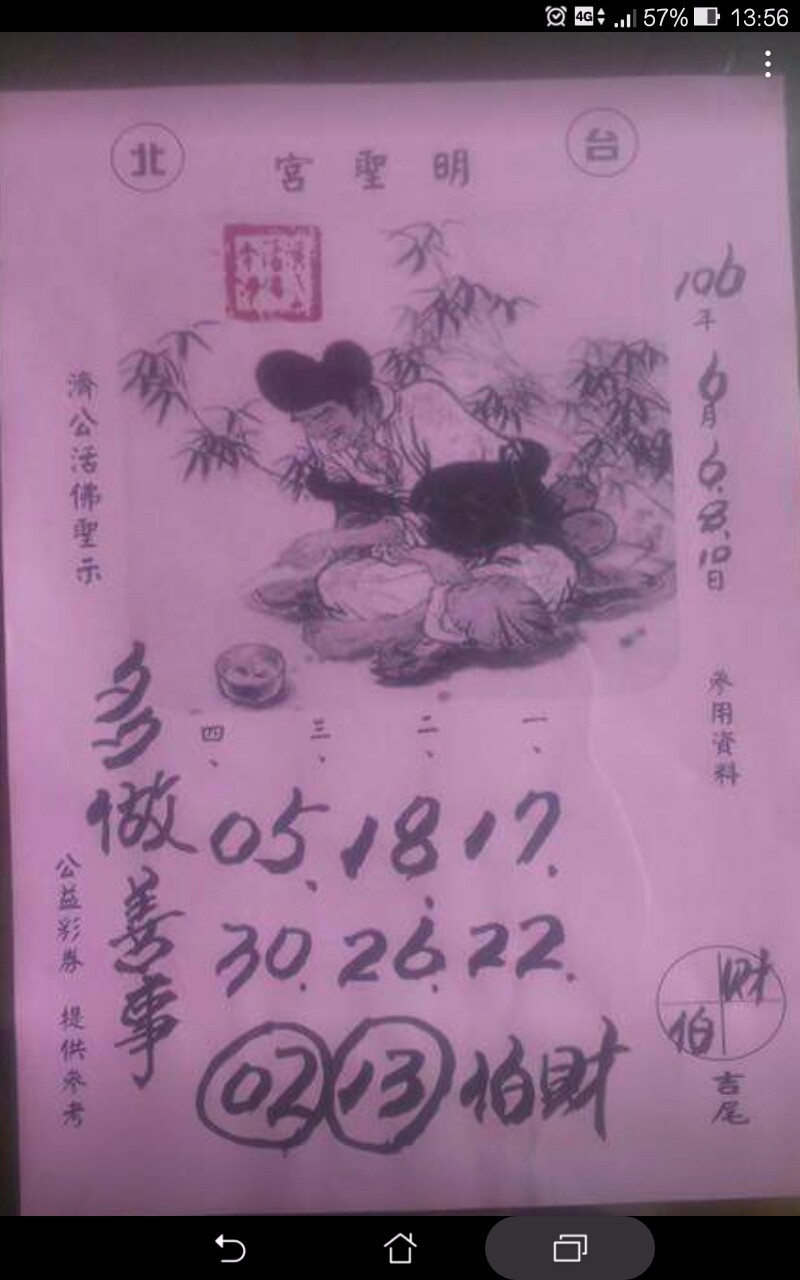 4G 57% 13:56
台北
明聖宮
106年6月6.8.10日
參用資料
濟公活佛聖示
一、
二、
三、
四、
05.18.17.
30.26.22.
02 13 伯財
多做善事
公益彩券 提供參考
財
伯
吉尾